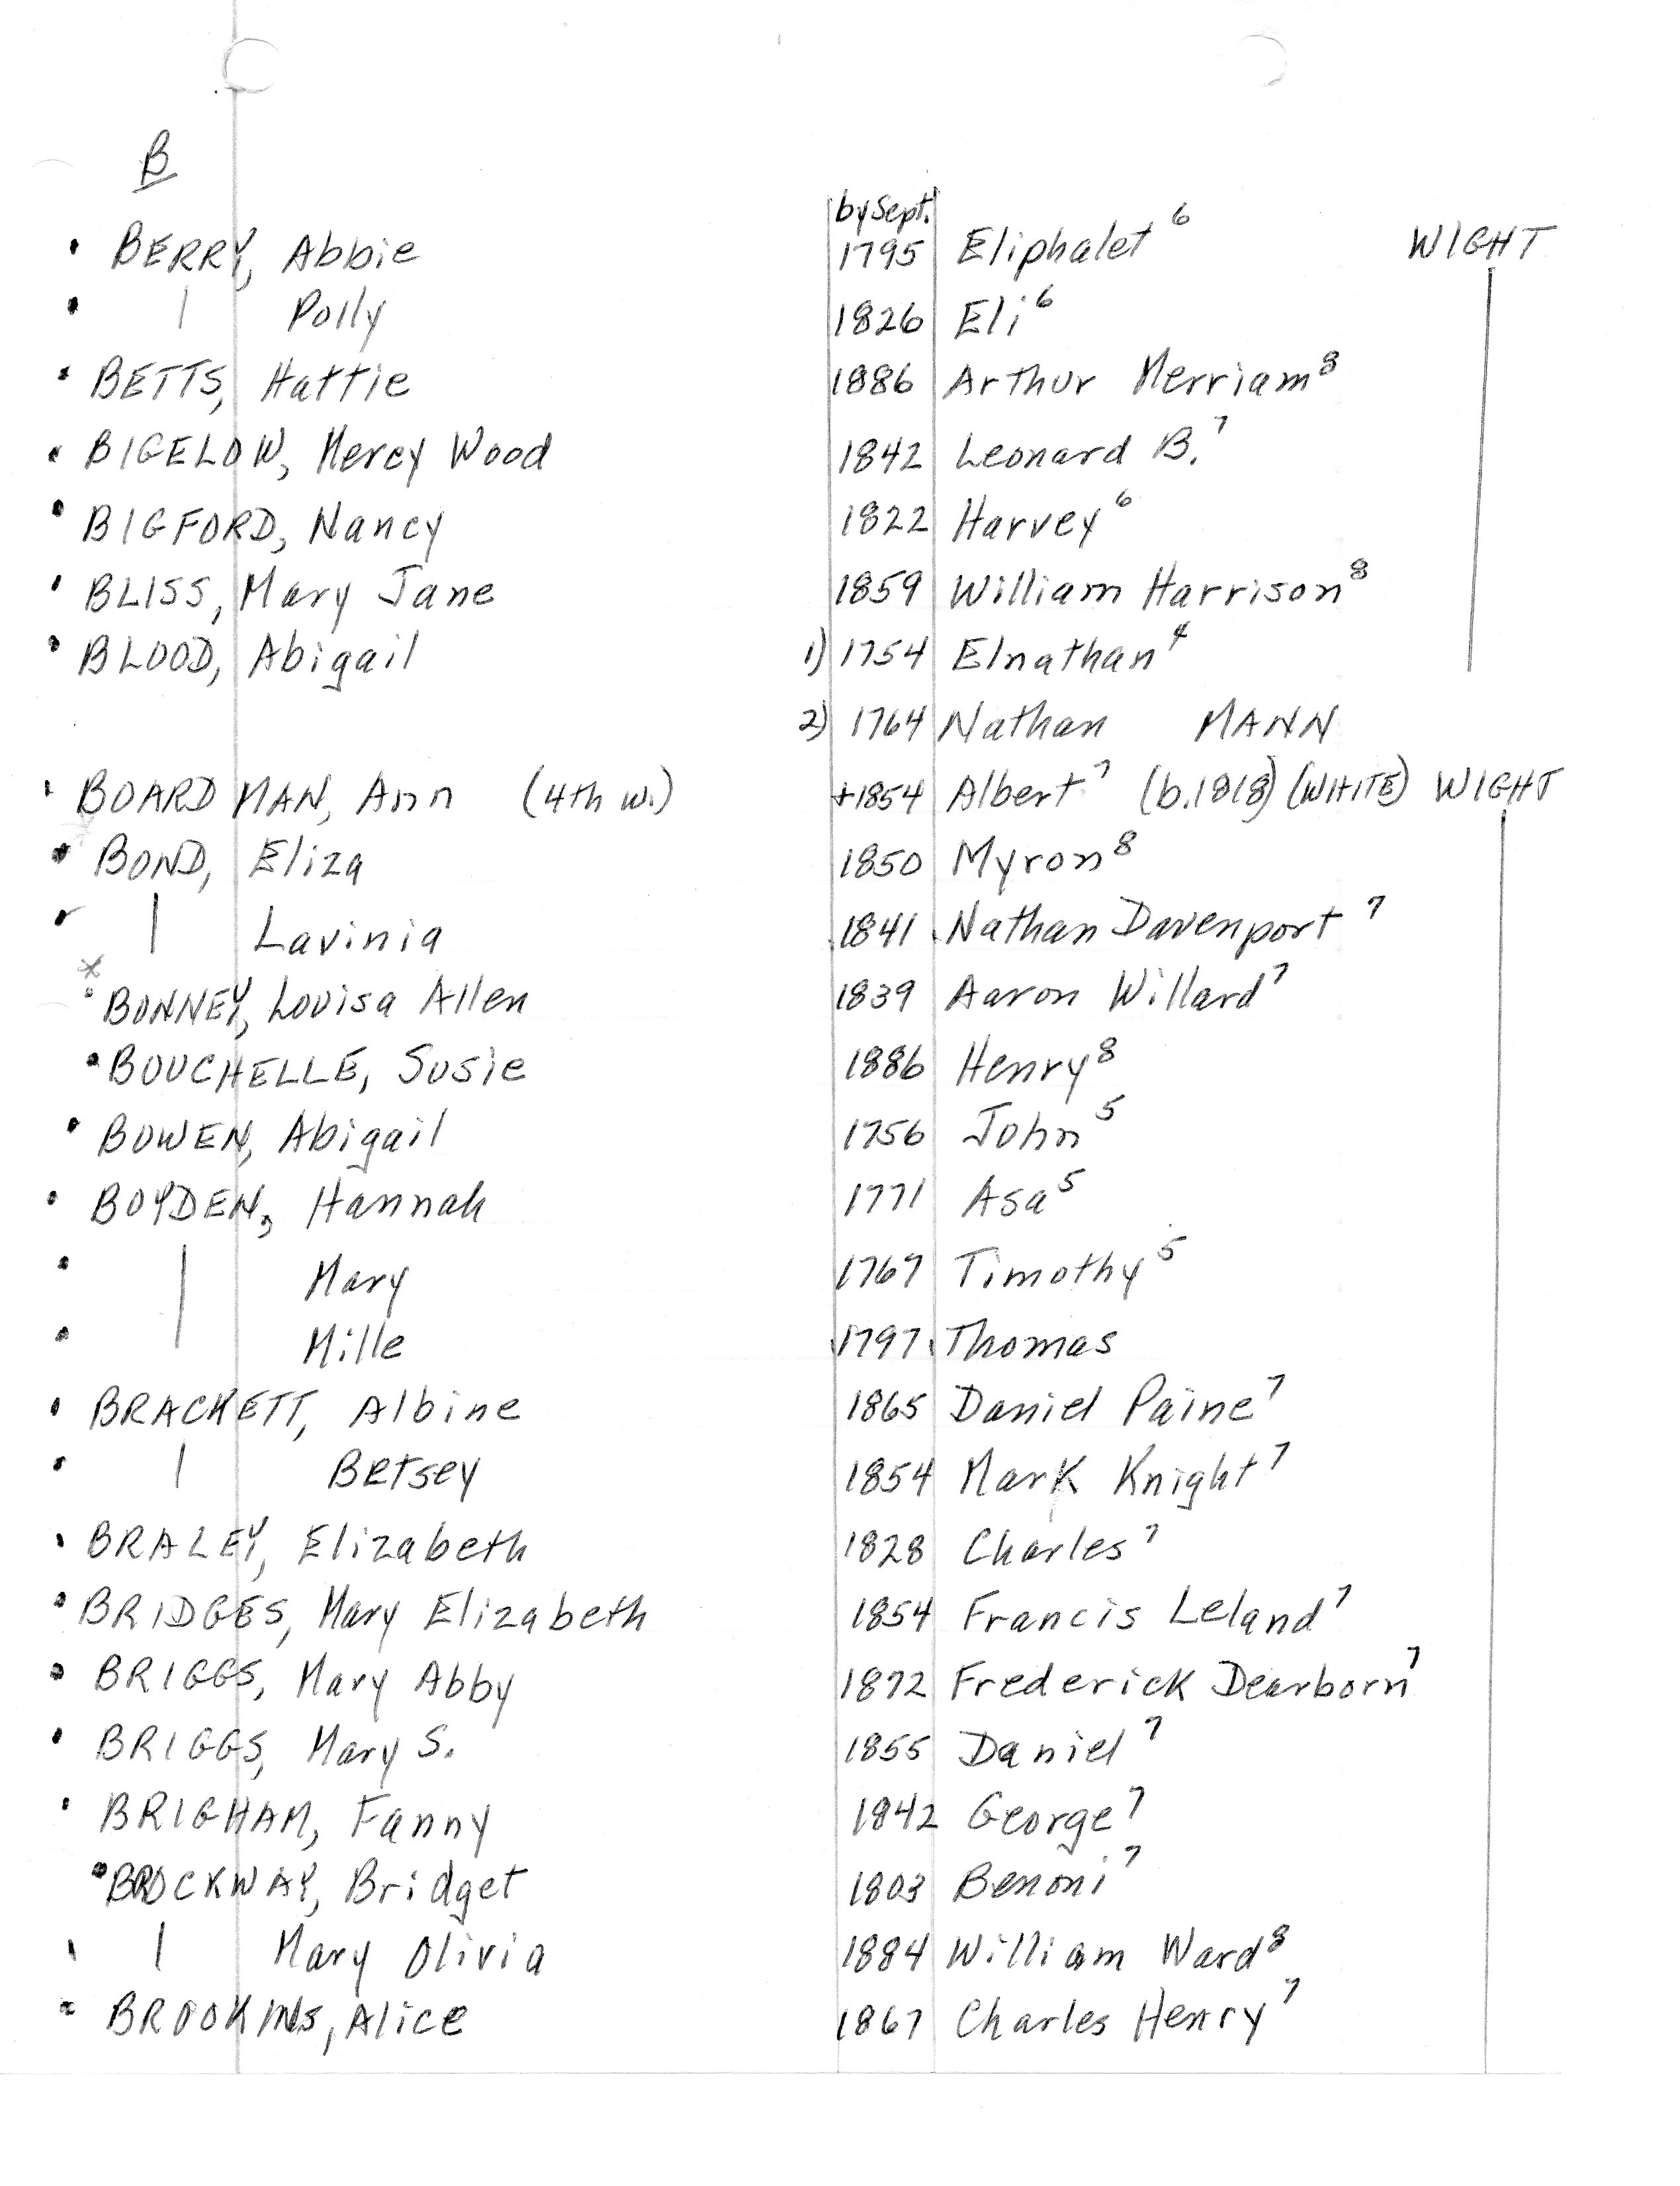 B
by Sept.
BERRY, Abbie 1795 Eliphalet⁶ WIGHT
Polly 1826 Eli⁶
BETTS, Hattie 1886 Arthur Merriam⁸
BIGELOW, Mercy Wood 1842 Leonard B.⁷
BIGFORD, Nancy 1822 Harvey⁶
BLISS, Mary Jane 1859 William Harrison⁸
BLOOD, Abigail 1) 1754 Elnathan⁴
2) 1764 Nathan MANN
BOARDMAN, Ann (4th w.) +1854 Albert⁷ (b.1818) (WHITE) WIGHT
BOND, Eliza 1850 Myron⁸
Lavinia 1841 Nathan Davenport⁷
*
BONNEY, Louisa Allen 1839 Aaron Willard⁷
BOUCHELLE, Susie 1886 Henry⁸
BOWEN, Abigail 1756 John⁵
BOYDEN, Hannah 1771 Asa⁵
Mary 1767 Timothy⁵
Mille 1797 Thomas
BRACKETT, Albine 1865 Daniel Paine⁷
Betsey 1854 Mark Knight⁷
BRALEY, Elizabeth 1828 Charles⁷
BRIDGES, Mary Elizabeth 1854 Francis Leland⁷
BRIGGS, Mary Abby 1872 Frederick Dearborn⁷
BRIGGS, Mary S. 1855 Daniel⁷
BRIGHAM, Fanny 1842 George⁷
BROCKWAY, Bridget 1803 Benoni⁷
Mary Olivia 1884 William Ward⁸
BROOKINS, Alice 1867 Charles Henry⁷